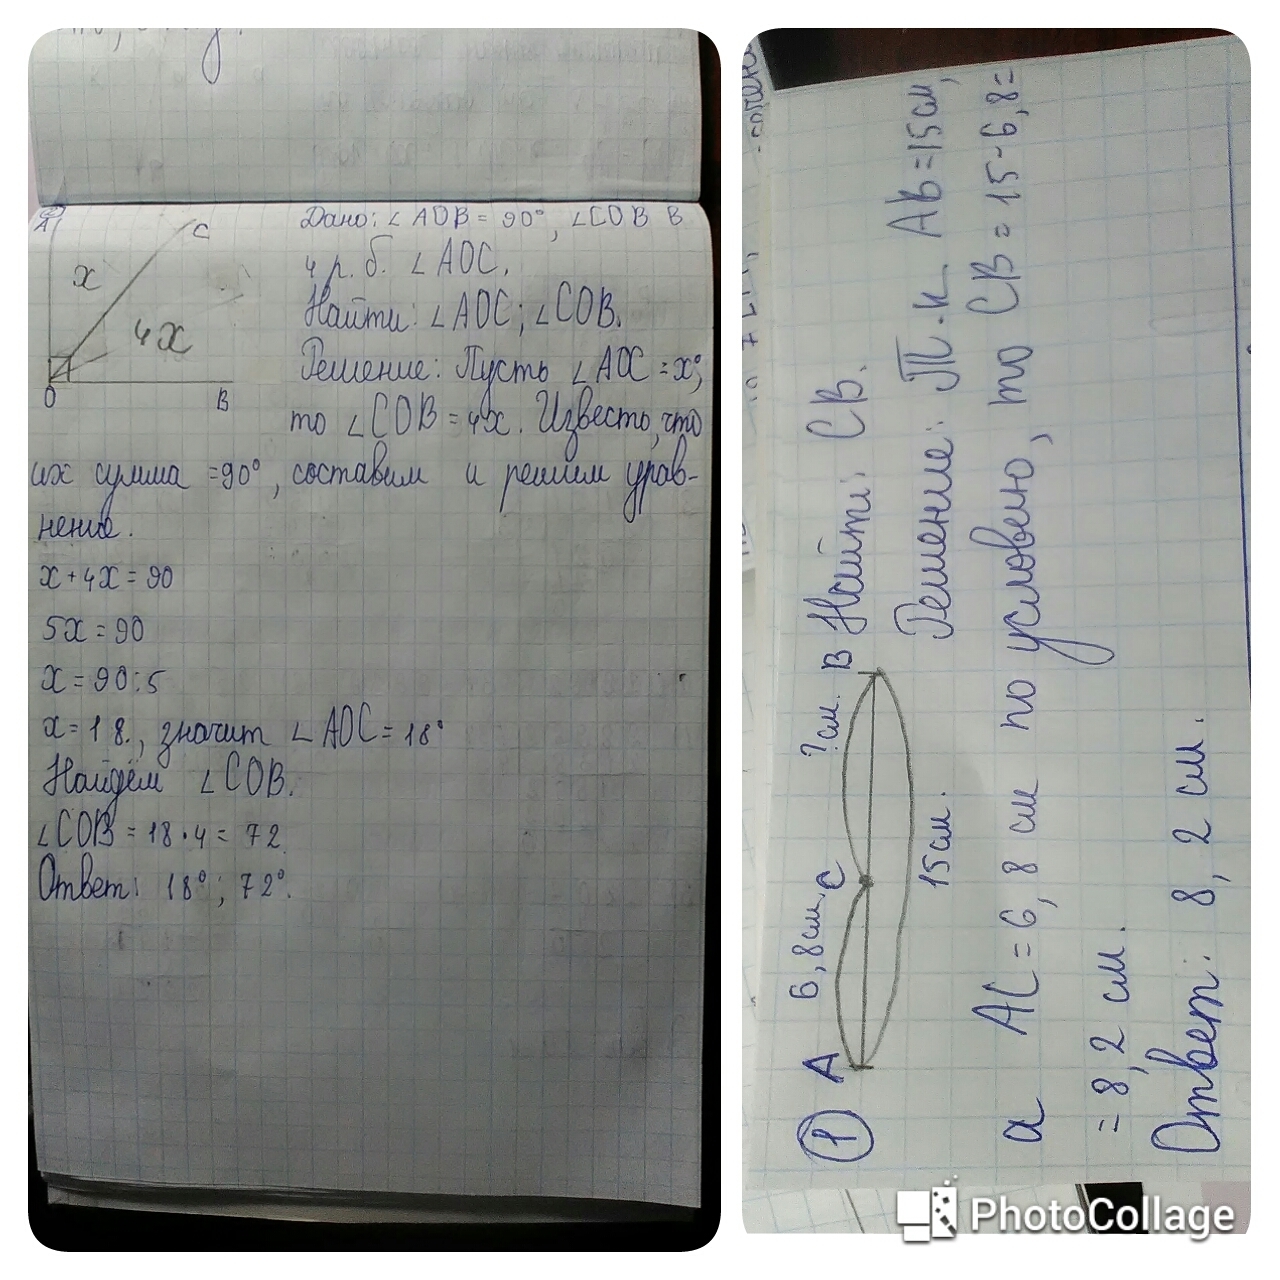 A
C
x
4x
O
B
Дано: ∠AOB = 90°, ∠COB в
4 р. б. ∠AOC.
Найти: ∠AOC; ∠COB.
Решение: Пусть ∠AOC = x°,
то ∠COB = 4x. Известо, что
их сумма = 90°, составим и решим урав-
нение.
x + 4x = 90
5x = 90
x = 90:5
x = 18., значит ∠AOC = 18°
Найдём ∠COB.
∠COB = 18 · 4 = 72
Ответ: 18°; 72°.
1
A 6,8 см. C ?см. B
15 см.
Найти: CB.
Решение: Т.к AB = 15 см,
а AC = 6,8 см по условею, то CB = 15-6,8=
= 8,2 см.
Ответ: 8,2 см.
PhotoCollage